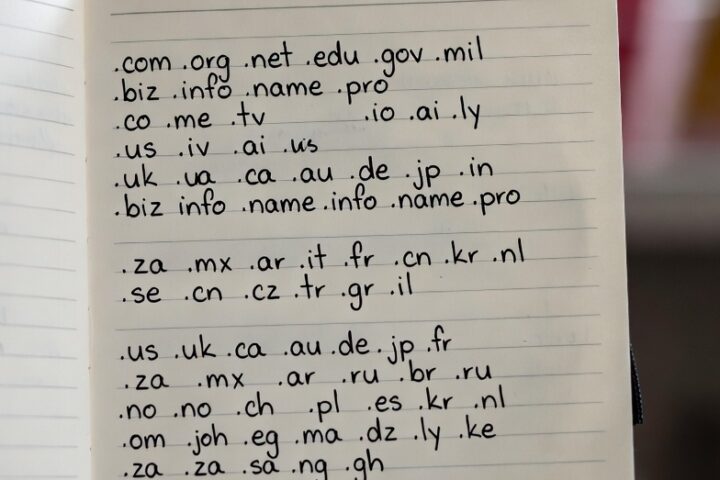 .com .org .net .edu .gov .mil
.biz .info .name .pro
.co .me .tv .io .ai .ly
.us .iv .ai .us
.uk .ua .ca .au .de .jp .in
.biz info .name .info .name .pro
.za .mx .ar .it .fr .cn .kr .nl
.se .cn .cz .tr .gr .il
.us .uk .ca .au .de .jp .fr
.za .mx .ar .ru .br .ru
.no .no .ch .pl .es .kr .nl
.om .joh .eg .ma .dz .ly .ke
.za .za .sa .ng .gh